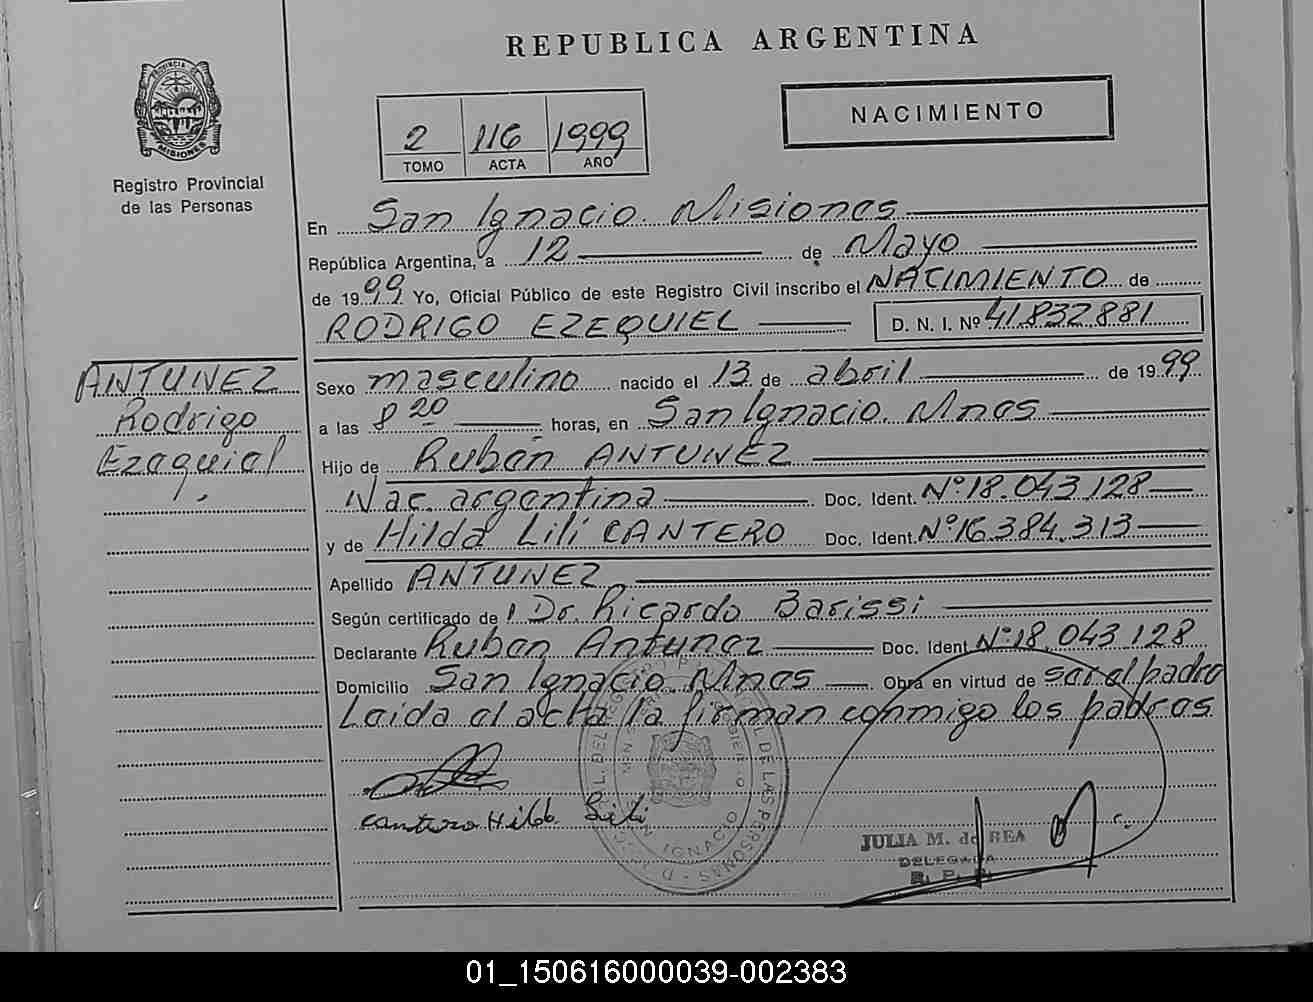 REPUBLICA ARGENTINA
PROVINCIA DE MISIONES
Registro Provincial
de las Personas
2 116 1999
TOMO ACTA AÑO
NACIMIENTO
En San Ignacio. Misiones
República Argentina, a 12 de Mayo
de 1999 Yo, Oficial Público de este Registro Civil inscribo el NACIMIENTO de
RODRIGO EZEQUIEL D. N. I. Nº 41.832.881
ANTUNEZ
Rodrigo
Ezequiel
Sexo masculino nacido el 13 de abril de 1999
a las 8 20 horas, en San Ignacio. Mnes
Hijo de Rubén ANTUNEZ
Nac. argentina Doc. Ident. Nº 18.043.128
y de Hilda Lilí CANTERO Doc. Ident. Nº 16.384.313
Apellido ANTUNEZ
Según certificado de Dr. Ricardo Barissi
Declarante Ruben Antunez Doc. Ident Nº 18.043.128
Domicilio San Ignacio. Mnes Obra en virtud de ser el padre
Leida el acta la firman conmigo los padres
Cantero Hilda Lili
IGNACIO
DE LAS PERSONAS
JULIA M. de REA
DELEGADA
R. P. P.
01_150616000039-002383